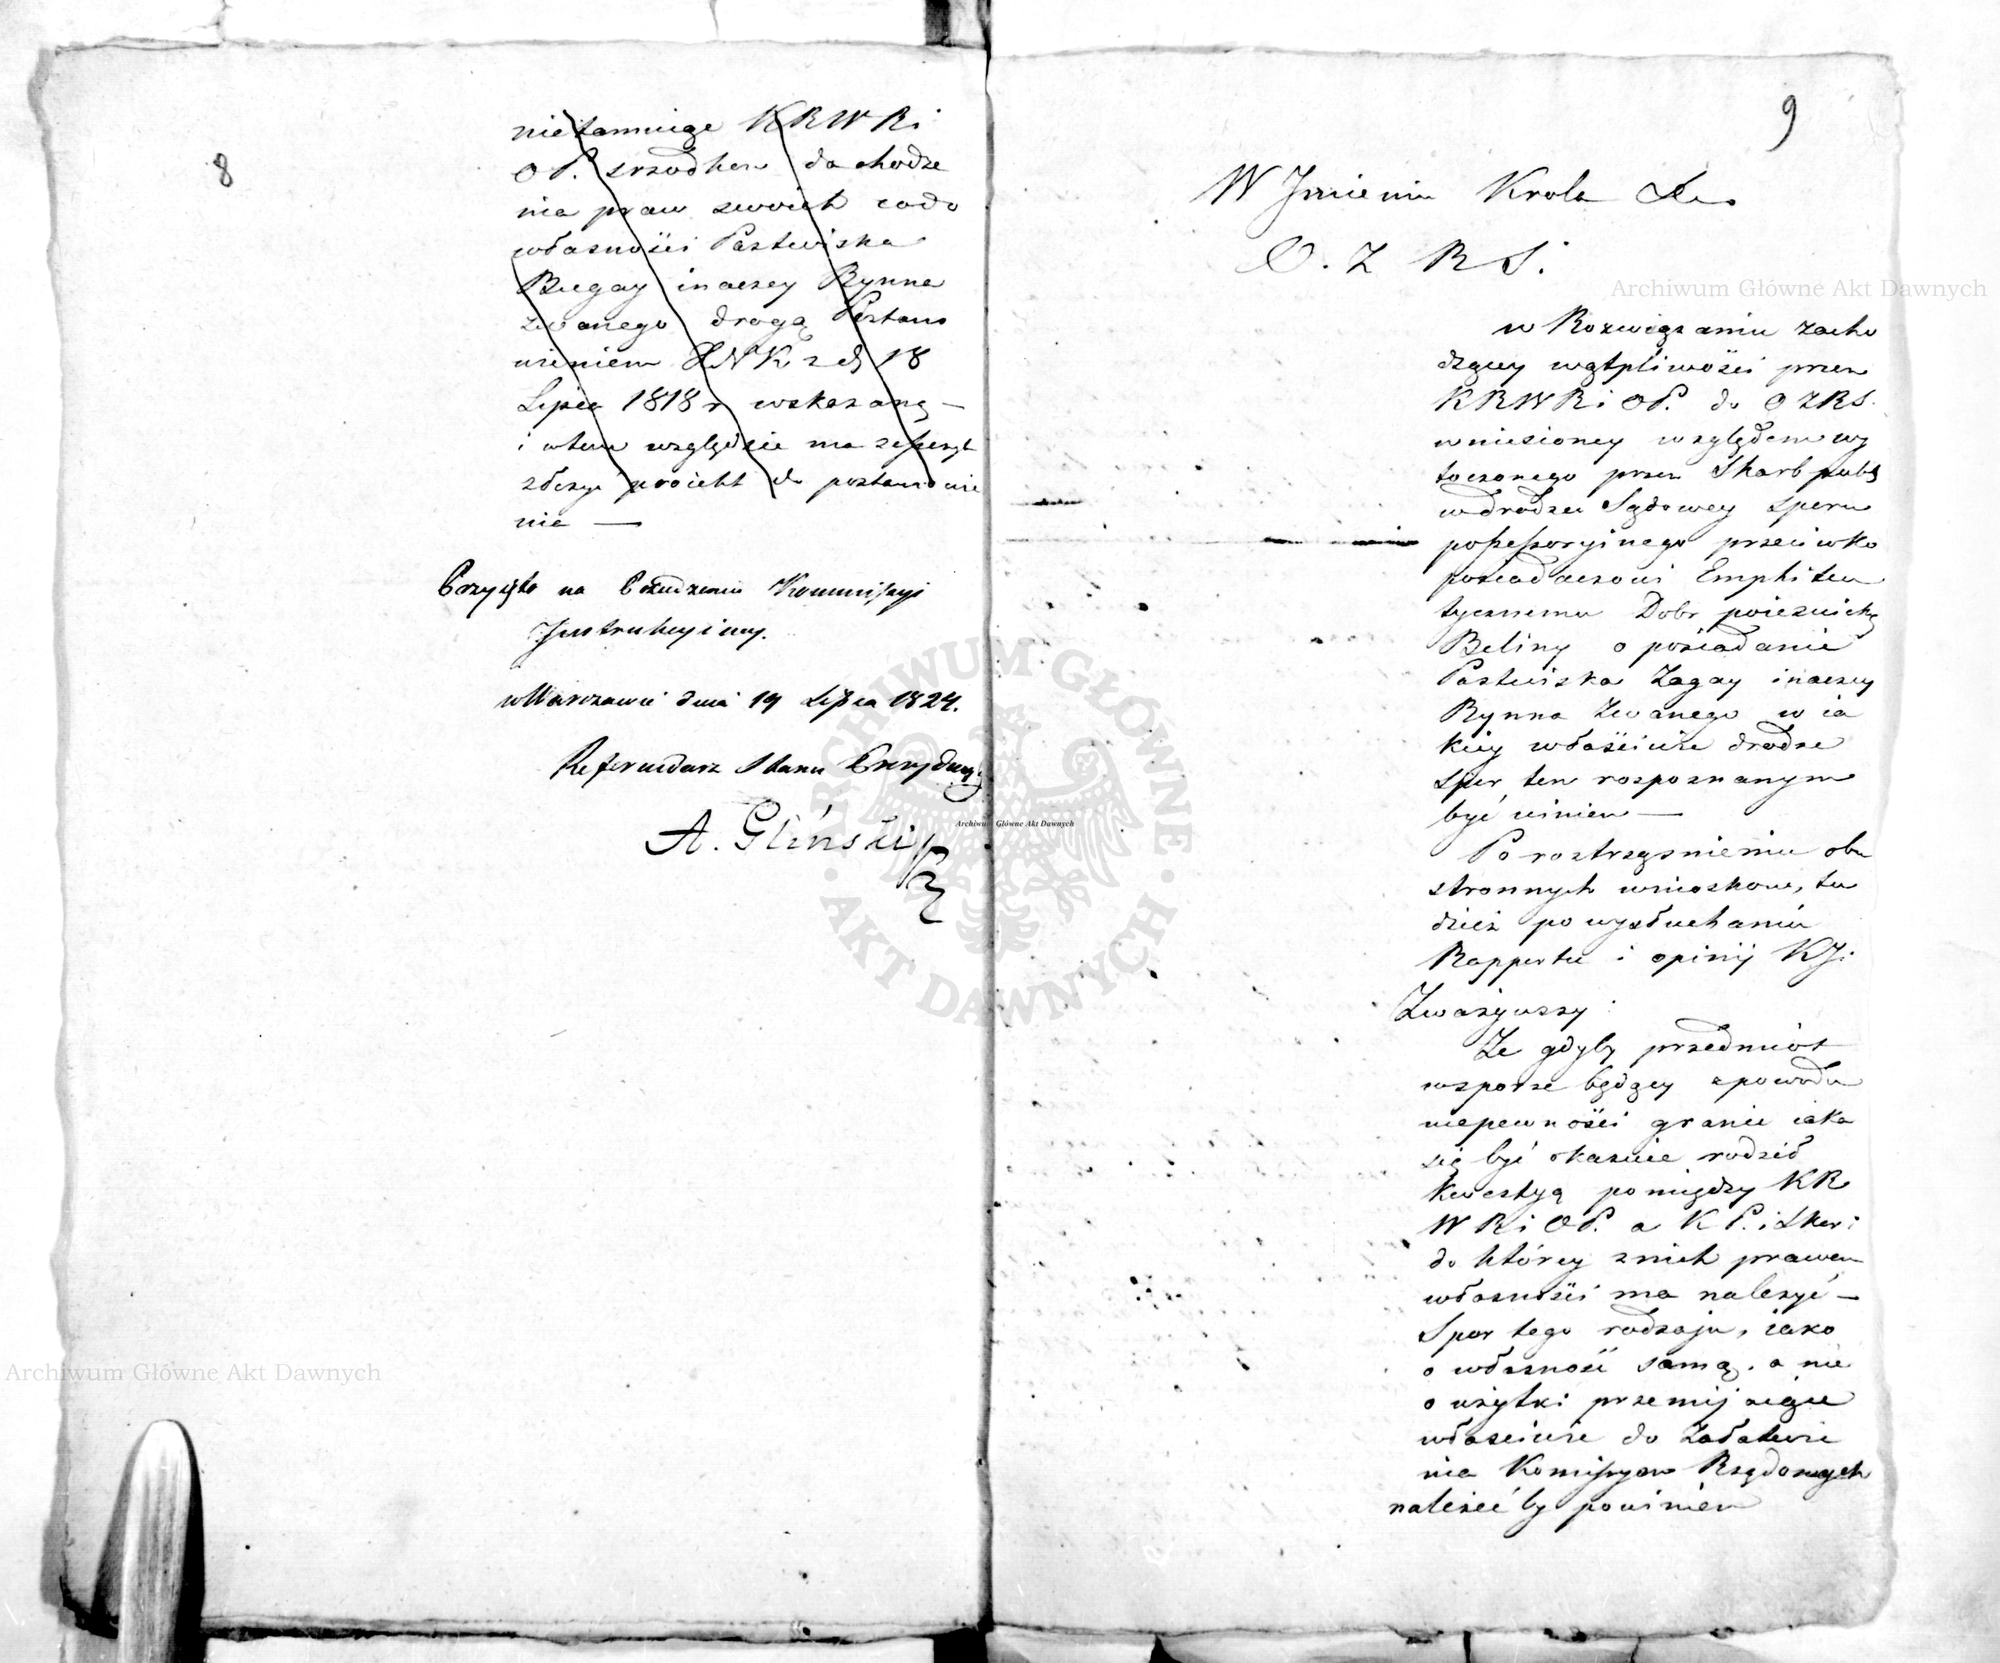 8
nietamuiąc KRWRi
OP. srzodken dochodze
nia praw swoich codo
własności Pastwiska
Biegay inaczey Rynna
zwanego drogą Postano
wieniem XNK z d. 18
Lipca 1818 r wskazaną —
i wtem względzie ma
złożyć proiekt do postanowie
nia —
Przyięto na Posiedzeniu Kommissyi
Instrukcyiney.
w Warszawie dnia 19 Lipca 1824.
Referendarz Stanu Prezyduiący
A. Gliński
9
W Imieniu Krola &c.
O. Z R S.
w Rozwiązaniu zacho
dzącey wątpliwości przez
KRWRiOP. do OZRS.
wniesioney względem wy
toczonego przez Skarb publ
wdrodze Sądowey sporu
possessoryinego przeciwko
posiadaczowi Emphiteu
tycznemu Dobr poiezuick
Beliny o posiadanie
Pastwiska Zagay inaczey
Rynna Zwanego w ia
kiey właściwie drodze
spor ten rozpoznanym
być winien —
Po roztrząsnieniu obu
stronnych wniosków, tu
dzież po wysłuchaniu
Rapportu i opinij KJ:
Zważywszy:
Że gdyby przedmiot
wsporze będący zpowodu
niepewności granic iaka
się być okazuie rodził
kwestyą pomiędzy KR
WRiOP. a KP.iSkar:
do którey znich prawem
własności ma należyć —
Spor tego rodzaju, iako
o własność samą, a nie
o użytki przemijaiące
właściwie do Załatwie
nia Komissyow Rządowych
należećby powinien